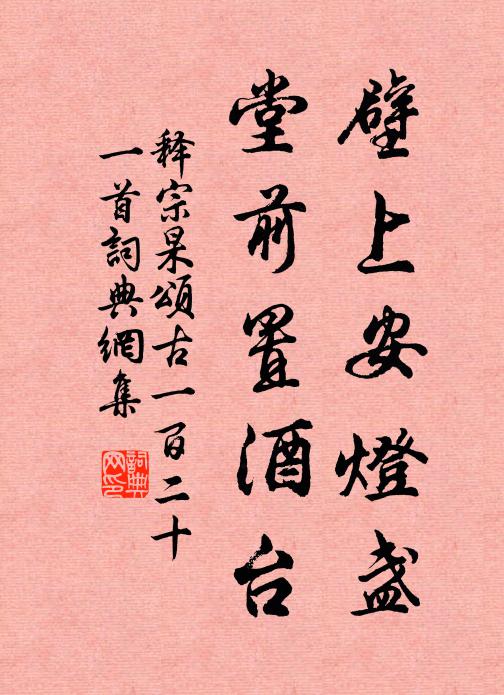 壁上安燈盞
堂前置酒台
释宗杲頌古一百二十
一首詞典網集
詞典網印